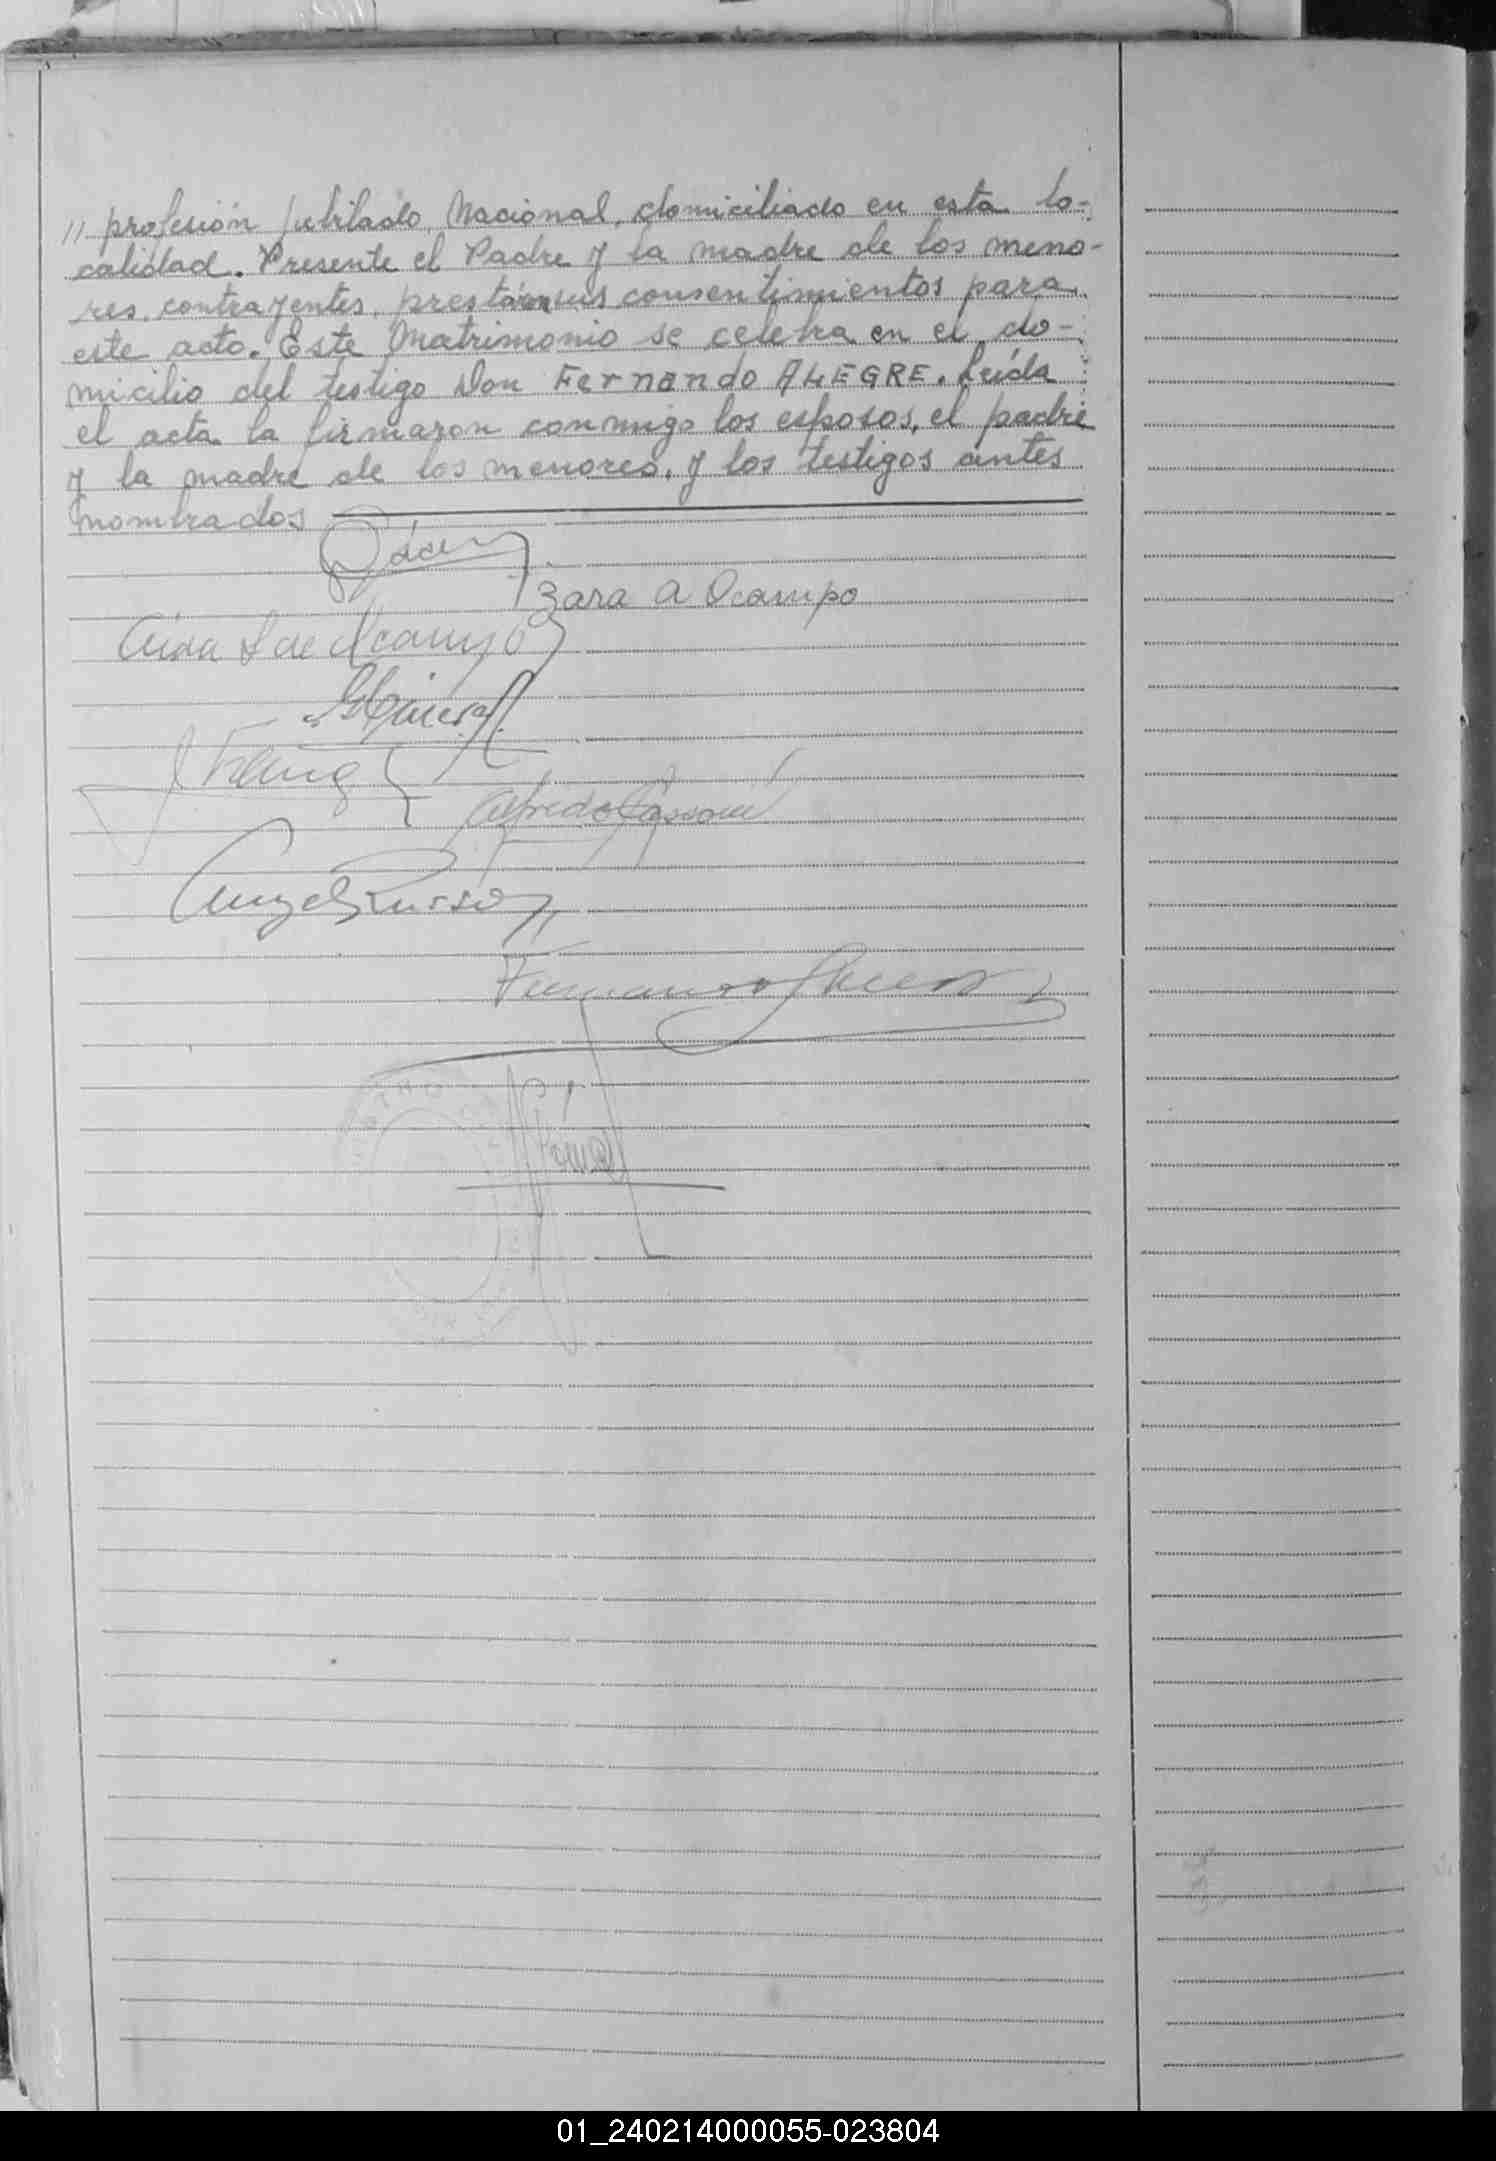 // profesión jubilado Nacional, domiciliado en esta lo-
calidad. Presente el Padre y la madre de los meno-
res contrayentes, prestaron sus consentimientos para
este acto. Este Matrimonio se celebra en el do-
micilio del testigo Don Fernando ALEGRE. Leída
el acta la firmaron conmigo los esposos, el padre
y la madre de los menores, y los testigos antes
nombrados
Zara A Ocampo
Aida S de Ocampo
Alfredo
Angel Russo
Fernando
01_240214000055-023804